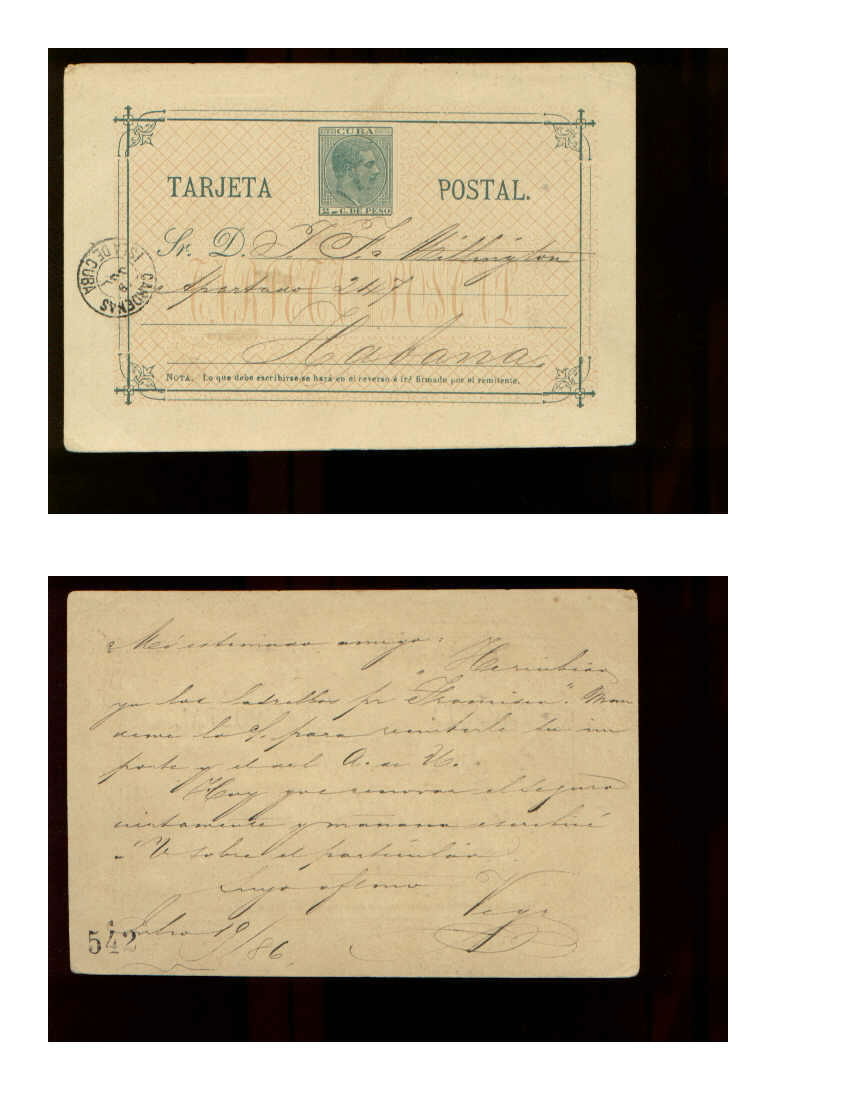 CUBA
2 C. DE PESO
TARJETA POSTAL.
Sr. D. J. F. Millington
Apartado 247
Habana
NOTA. Lo que debe escribirse se hará en el reverso é irá firmado por el remitente.
CARDENAS
ISLA DE CUBA
Mi estimado amigo:
Recibidos
ya los ladrillos pr Man
deme la para remitirle su im
porte y el del A. de
Hay que renovar el seguro
y mañana escribiré
a V sobre el particular
Suyo afmo Vega
Julio 19/86
542